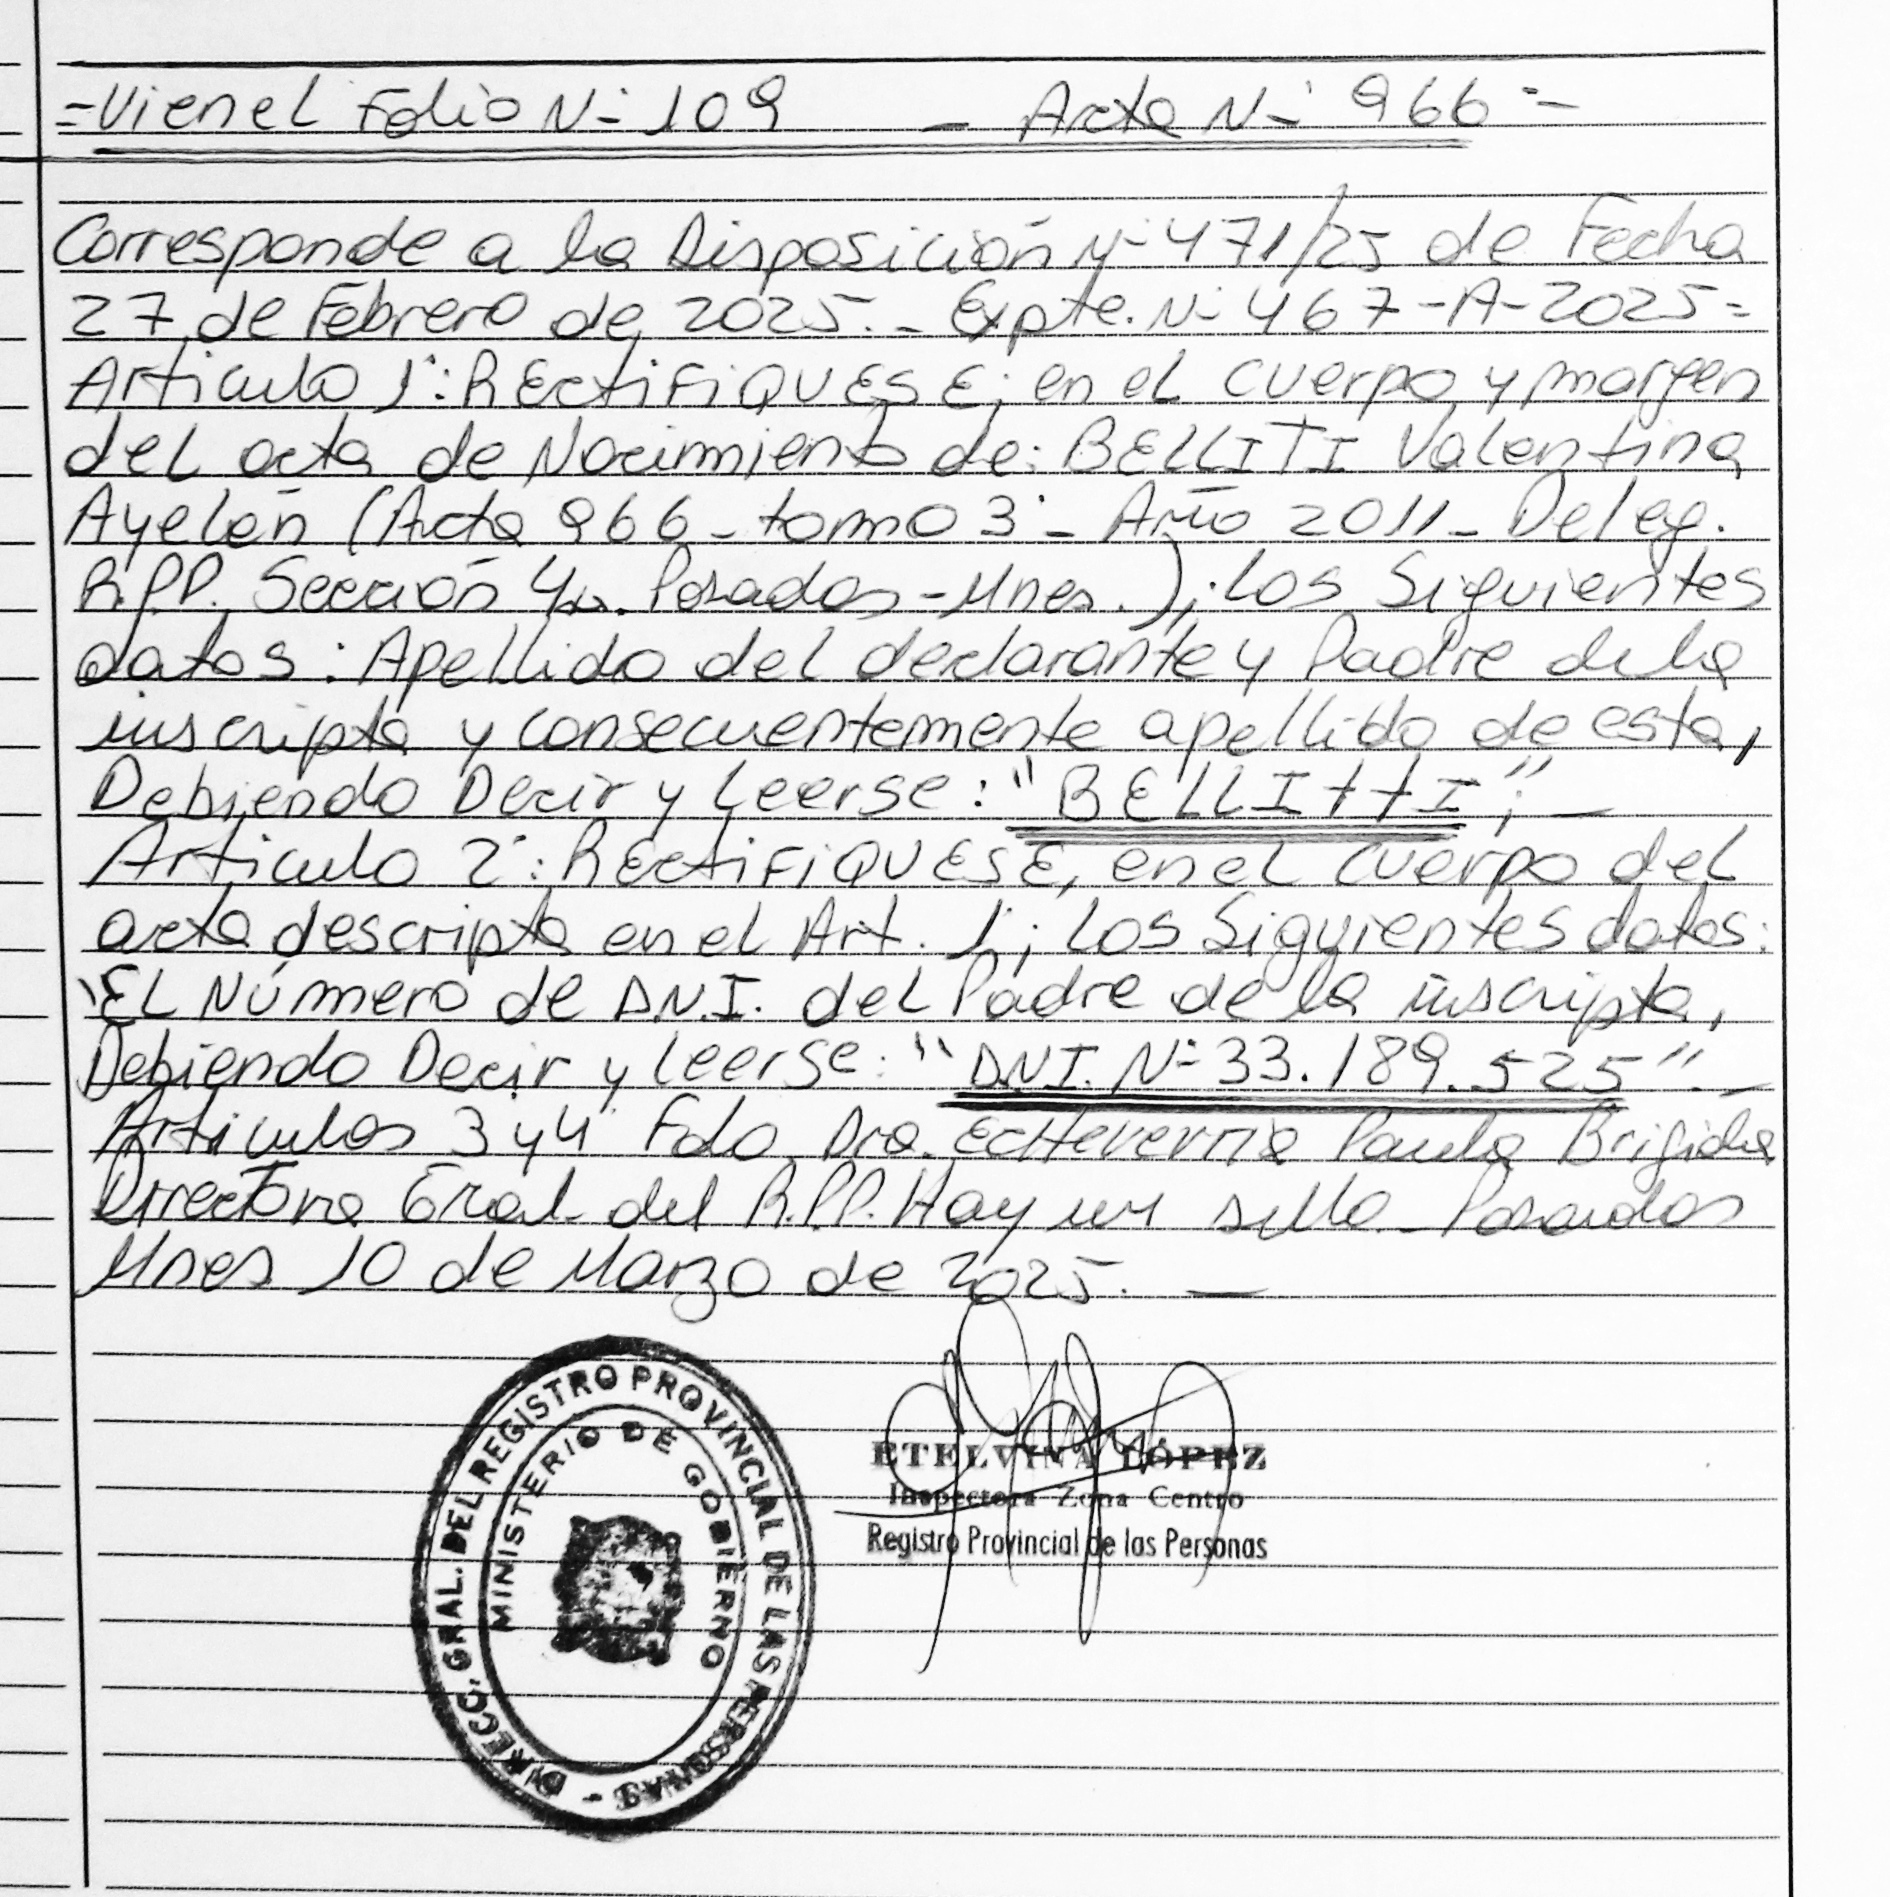 =Vienel Folio N- 109 - Acta N- 966 =
Corresponde a la Disposición N- 471/25 de Fecha
27 de Febrero de 2025.- Expte. N- 467-A-2025=
Articulo 1°: RECtiFiQUESE; en el cuerpo y margen
del acta de Nacimiento de: BELLITI Valentina
Ayelén (Acta 966 - tomo 3° - Año 2011 - Deleg.
R.P.P. Sección 4ta. Posadas - Mnes.); Los Siguientes
datos: Apellido del declarante y Padre de la
inscripta y consecuentemente apellido de esta,
Debiendo Decir y Leerse: "BELLITTI"; -
Articulo 2°: RECtiFiQUESE, en el cuerpo del
acta descripta en el Art. 1°; Los Siguientes datos:
"EL Número de D.N.I. del Padre de la inscripta,
Debiendo Decir y Leerse: "D.N.I. N- 33.189.525".-
Articulos 3 y 4° Fdo. Dra. Echeverria Paula Brigida
Directora Gral. del R.P.P. Hay un sello - Posadas
Mnes 10 de Marzo de 2025. -
DIRECC. GRAL. DEL REGISTRO PROVINCIAL DE LAS PERSONAS -
MINISTERIO DE GOBIERNO
ETELVINA LÓPEZ
Inspectora Zona Centro
Registro Provincial de las Personas